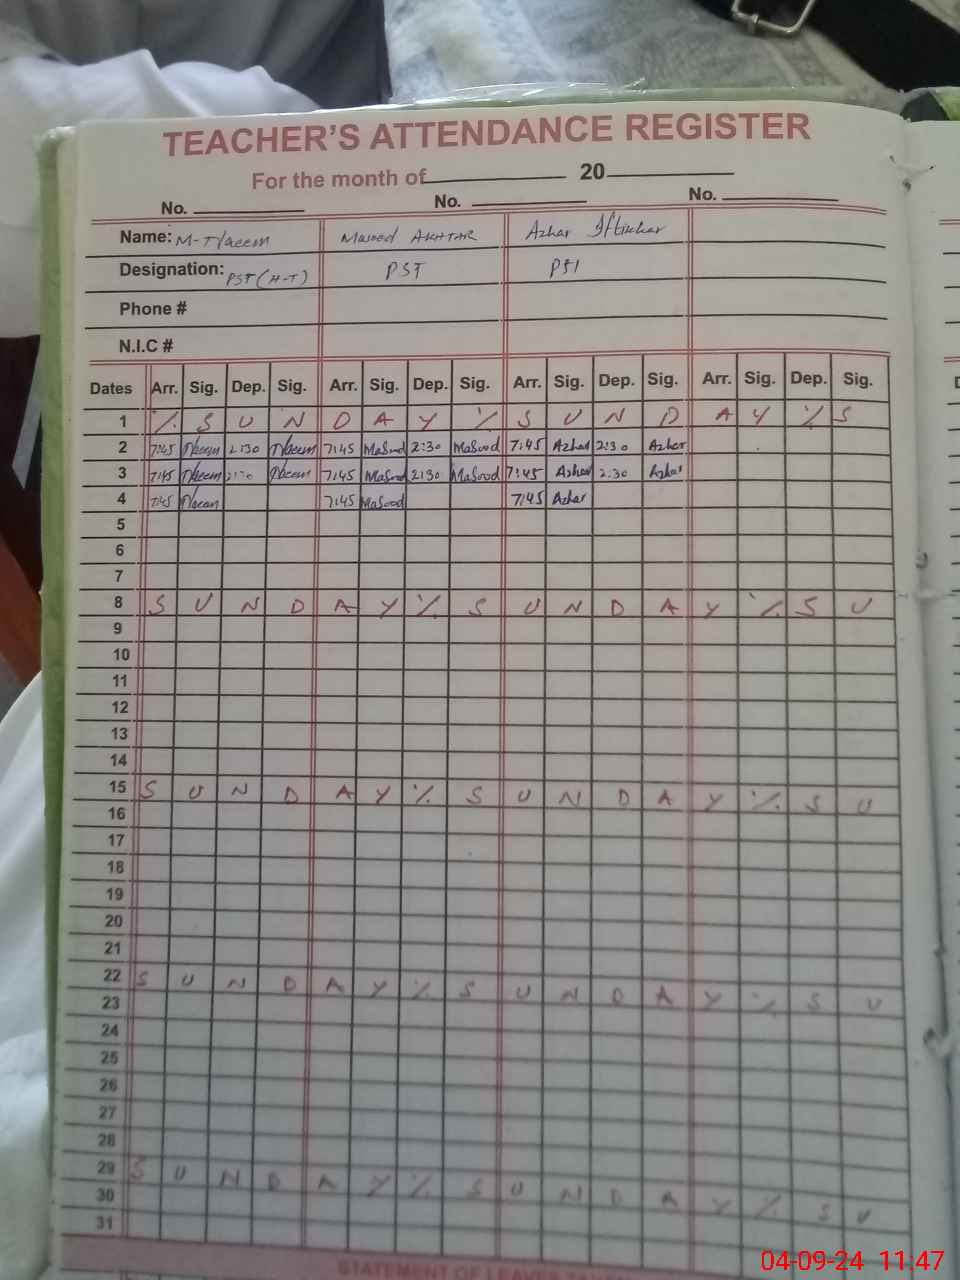 TEACHER'S ATTENDANCE REGISTER
For the month of 20
No. No. No.
Name: M-Naeem Masood AKHTAR Azhar Iftikhar
Designation: PST (H-T) PST PST
Phone #
N.I.C #
Dates Arr. Sig. Dep. Sig. Arr. Sig. Dep. Sig. Arr. Sig. Dep. Sig. Arr. Sig. Dep. Sig.
1 % S U N D A Y % S U N D A Y % S
2 7:45 Naeem 2:30 Naeem 7:45 Masood 2:30 Masood 7:45 Azhar 2:30 Azhar
3 7:45 Naeem 2:30 Naeem 7:45 Masood 2:30 Masood 7:45 Azhar 2.30 Azhar
4 7:45 Naeem 7:45 Masood 7:45 Azhar
5
6
7
8 S U N D A Y % S U N D A Y % S U
9
10
11
12
13
14
15 S U N D A Y % S U N D A Y % S U
16
17
18
19
20
21
22 S U N D A Y % S U N D A Y % S U
23
24
25
26
27
28
29 S U N D A Y % S U N D A Y % S U
30
31
STATEMENT OF LEAVE
04-09-24 11:47